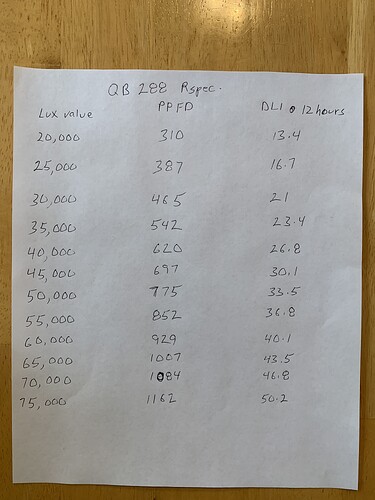 QB 288 Rspec.
Lux value PPFD DLI @ 12 hours
20,000 310 13.4
25,000 387 16.7
30,000 465 21
35,000 542 23.4
40,000 620 26.8
45,000 697 30.1
50,000 775 33.5
55,000 852 36.8
60,000 929 40.1
65,000 1007 43.5
70,000 1084 46.8
75,000 1162 50.2